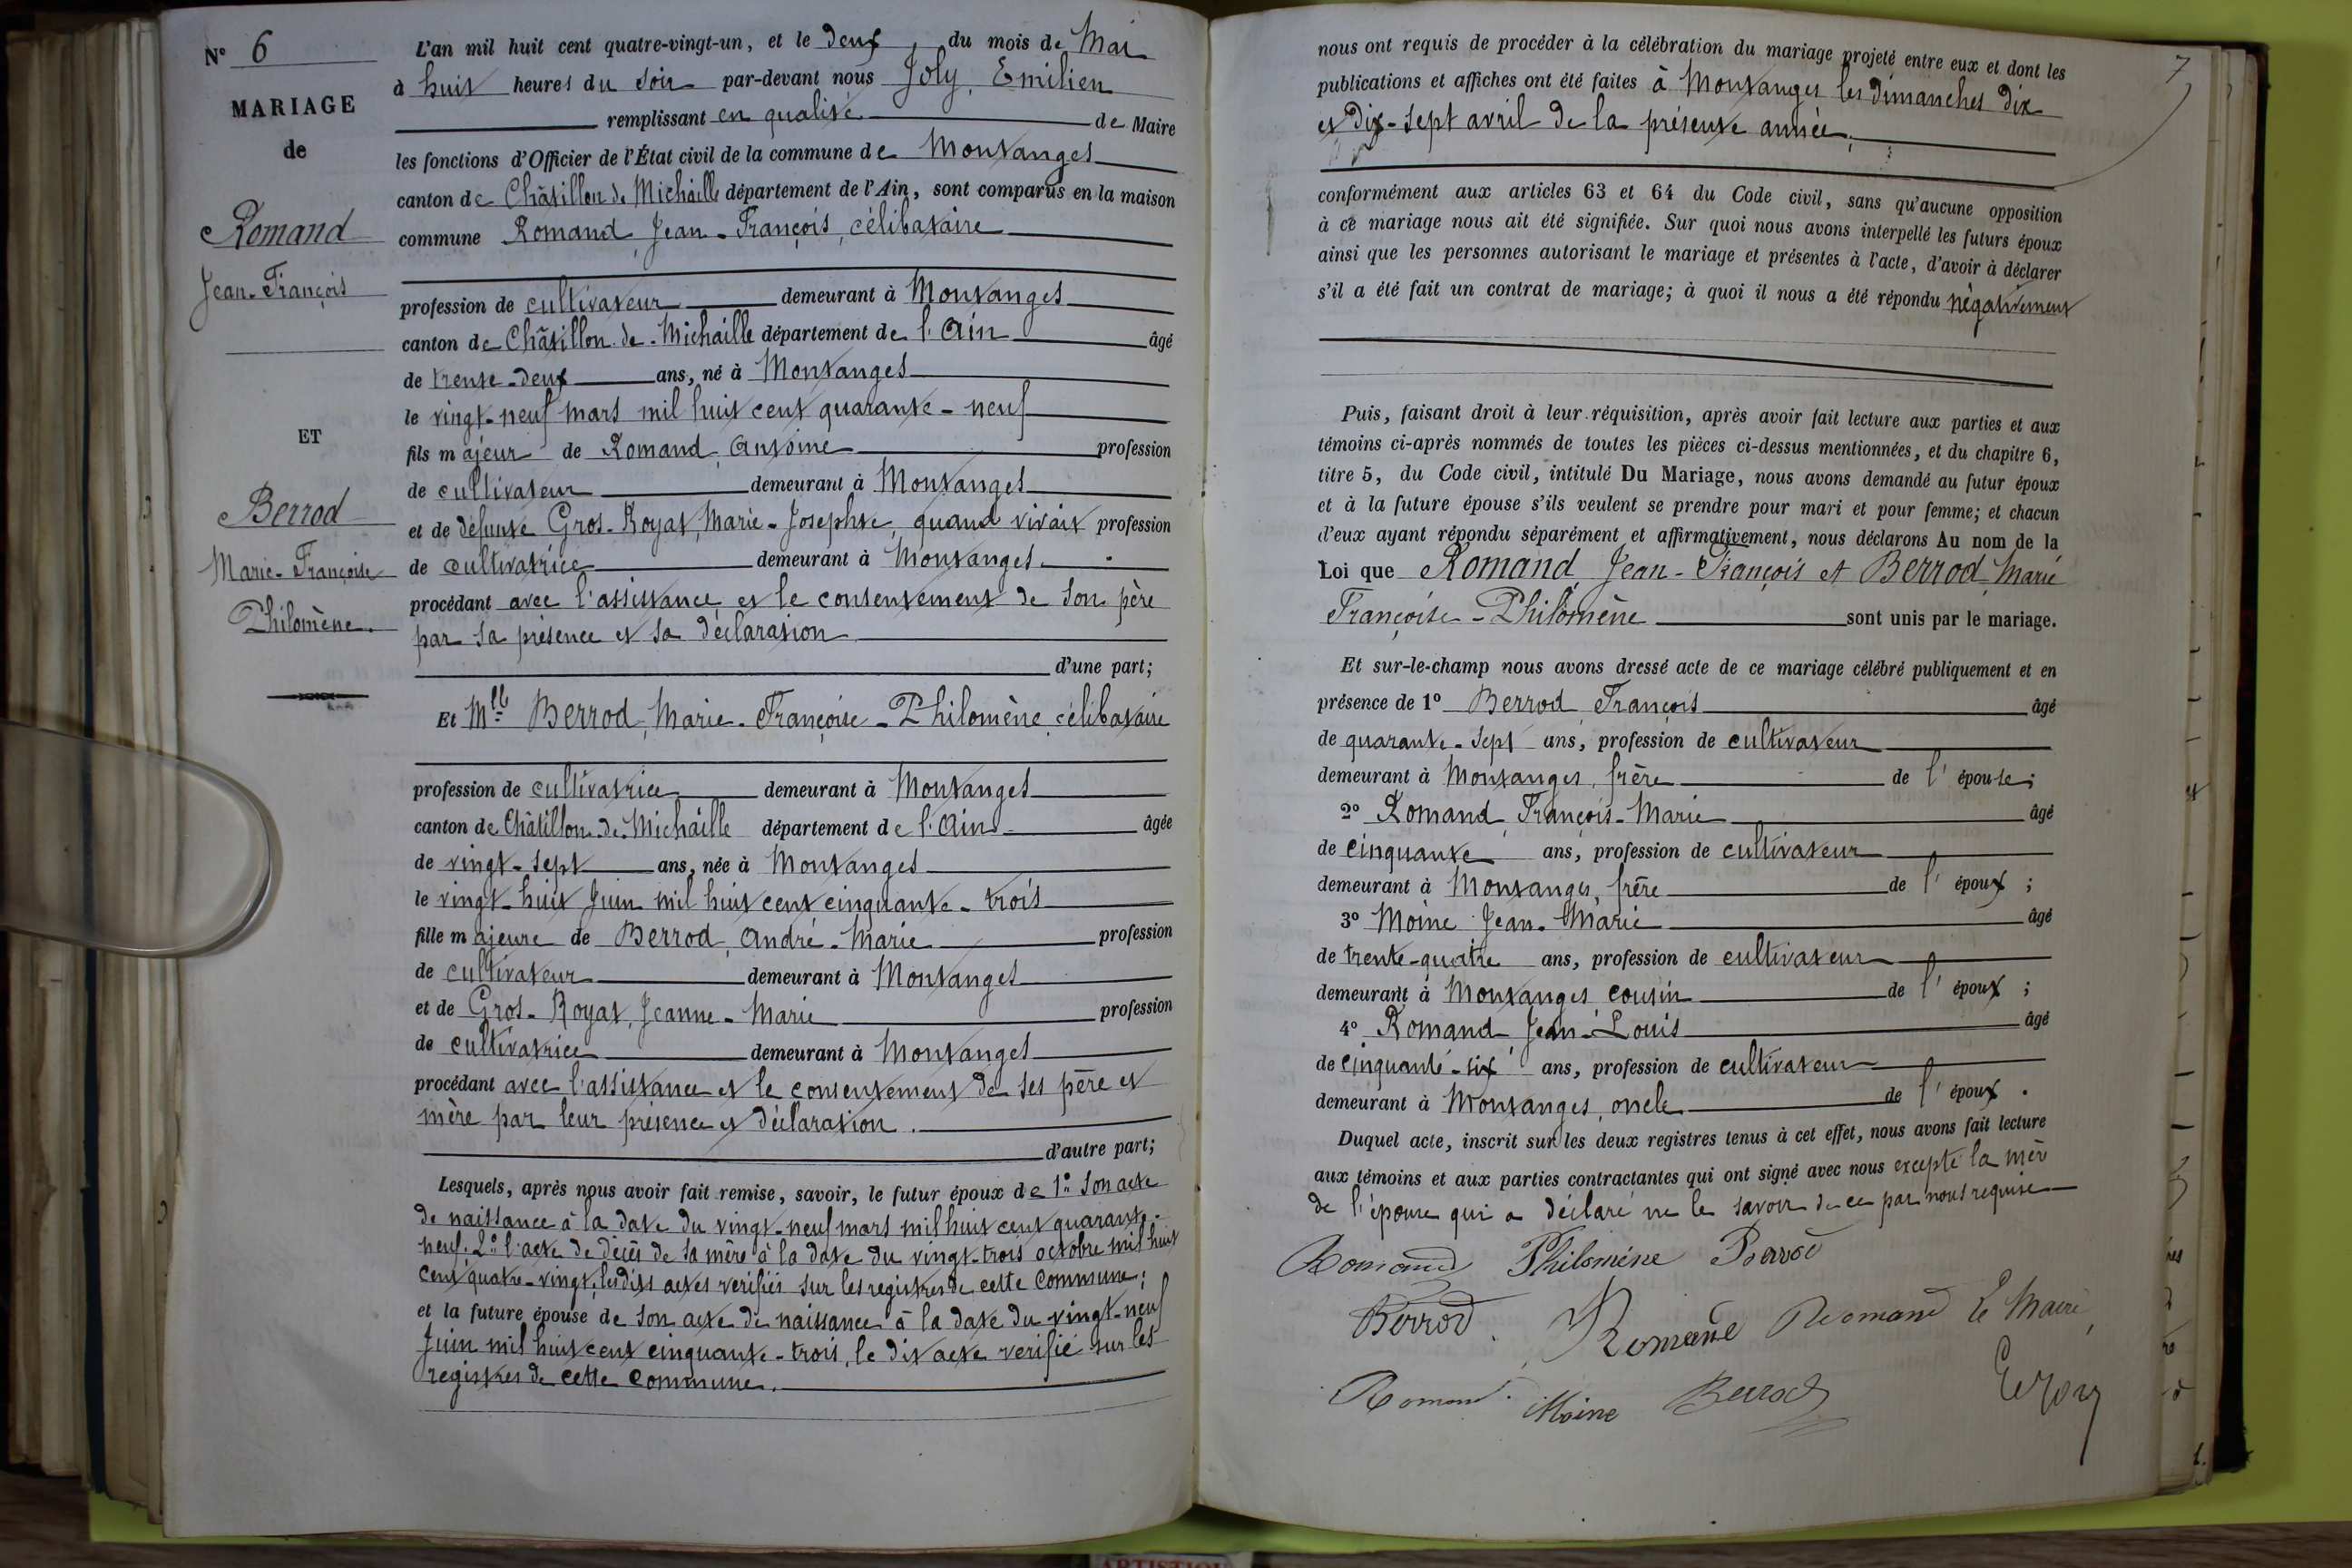 N° 6
MARIAGE
de
Romand
Jean-François
ET
Berrod
Marie-Françoise
Philomène.
L'an mil huit cent quatre-vingt-un, et le deux du mois de Mai
à huit heures du soir par-devant nous Joly, Emilien
remplissant en qualité de Maire
les fonctions d'Officier de l'État civil de la commune de Montanges
canton de Châtillon de Michaille département de l'Ain, sont comparus en la maison
commune Romand, Jean-François, célibataire
profession de cultivateur demeurant à Montanges
canton de Châtillon-de-Michaille département de l'Ain âgé
de trente-deux ans, né à Montanges
le vingt-neuf mars mil huit cent quarante-neuf
fils majeur de Romand, Antoine profession
de cultivateur demeurant à Montanges
et de défunte Gros-Royat, Marie-Josephte, quand vivait profession
de cultivatrice demeurant à Montanges.
procédant avec l'assistance et le consentement de son père
par sa présence et sa déclaration
d'une part;
Et Mlle Berrod, Marie-Françoise-Philomène, célibataire
profession de cultivatrice demeurant à Montanges
canton de Châtillon-de-Michaille département de l'Ain âgée
de vingt-sept ans, née à Montanges
le vingt-huit Juin mil huit cent cinquante-trois
fille majeure de Berrod, André-Marie profession
de cultivateur demeurant à Montanges
et de Gros-Royat, Jeanne-Marie profession
de cultivatrice demeurant à Montanges
procédant avec l'assistance et le consentement de ses père et
mère par leur présence et déclaration.
d'autre part;
Lesquels, après nous avoir fait remise, savoir, le futur époux de 1° Son acte
de naissance à la date du vingt-neuf mars mil huit cent quarante-
neuf. 2° l'acte de décès de sa mère à la date du vingt-trois octobre mil huit
cent quatre-vingt, lesdits actes verifiés sur les registres de cette Commune;
et la future épouse de son acte de naissance à la date du vingt-neuf
Juin mil huit cent cinquante-trois, le dit acte verifié sur les
registres de cette Commune.
7
nous ont requis de procéder à la célébration du mariage projeté entre eux et dont les
publications et affiches ont été faites à Montanges les dimanches dix
et dix-sept avril de la présente année,
conformément aux articles 63 et 64 du Code civil, sans qu'aucune opposition
à ce mariage nous ait été signifiée. Sur quoi nous avons interpellé les futurs époux
ainsi que les personnes autorisant le mariage et présentes à l'acte, d'avoir à déclarer
s'il a été fait un contrat de mariage; à quoi il nous a été répondu négativement
Puis, faisant droit à leur réquisition, après avoir fait lecture aux parties et aux
témoins ci-après nommés de toutes les pièces ci-dessus mentionnées, et du chapitre 6,
titre 5, du Code civil, intitulé Du Mariage, nous avons demandé au futur époux
et à la future épouse s'ils veulent se prendre pour mari et pour femme; et chacun
d'eux ayant répondu séparément et affirmativement, nous déclarons Au nom de la
Loi que Romand, Jean-François et Berrod, Marie
Françoise-Philomène sont unis par le mariage.
Et sur-le-champ nous avons dressé acte de ce mariage célébré publiquement et en
présence de 1° Berrod, François âgé
de quarante-sept ans, profession de cultivateur
demeurant à Montanges, frère de l'épouse;
2° Romand, François-Marie âgé
de cinquante ans, profession de cultivateur
demeurant à Montanges, frère de l'époux;
3° Moine Jean-Marie âgé
de trente-quatre ans, profession de cultivateur
demeurant à Montanges cousin de l'époux;
4° Romand Jean-Louis âgé
de cinquante-six ans, profession de cultivateur
demeurant à Montanges, oncle de l'époux.
Duquel acte, inscrit sur les deux registres tenus à cet effet, nous avons fait lecture
aux témoins et aux parties contractantes qui ont signé avec nous excepté la mère
de l'épouse qui a déclaré ne le savoir de ce par nous requise
Romand Philomène Berrod
Berrod. Romand Romand Le Maire,
Romand. Moine Berrod E Joly